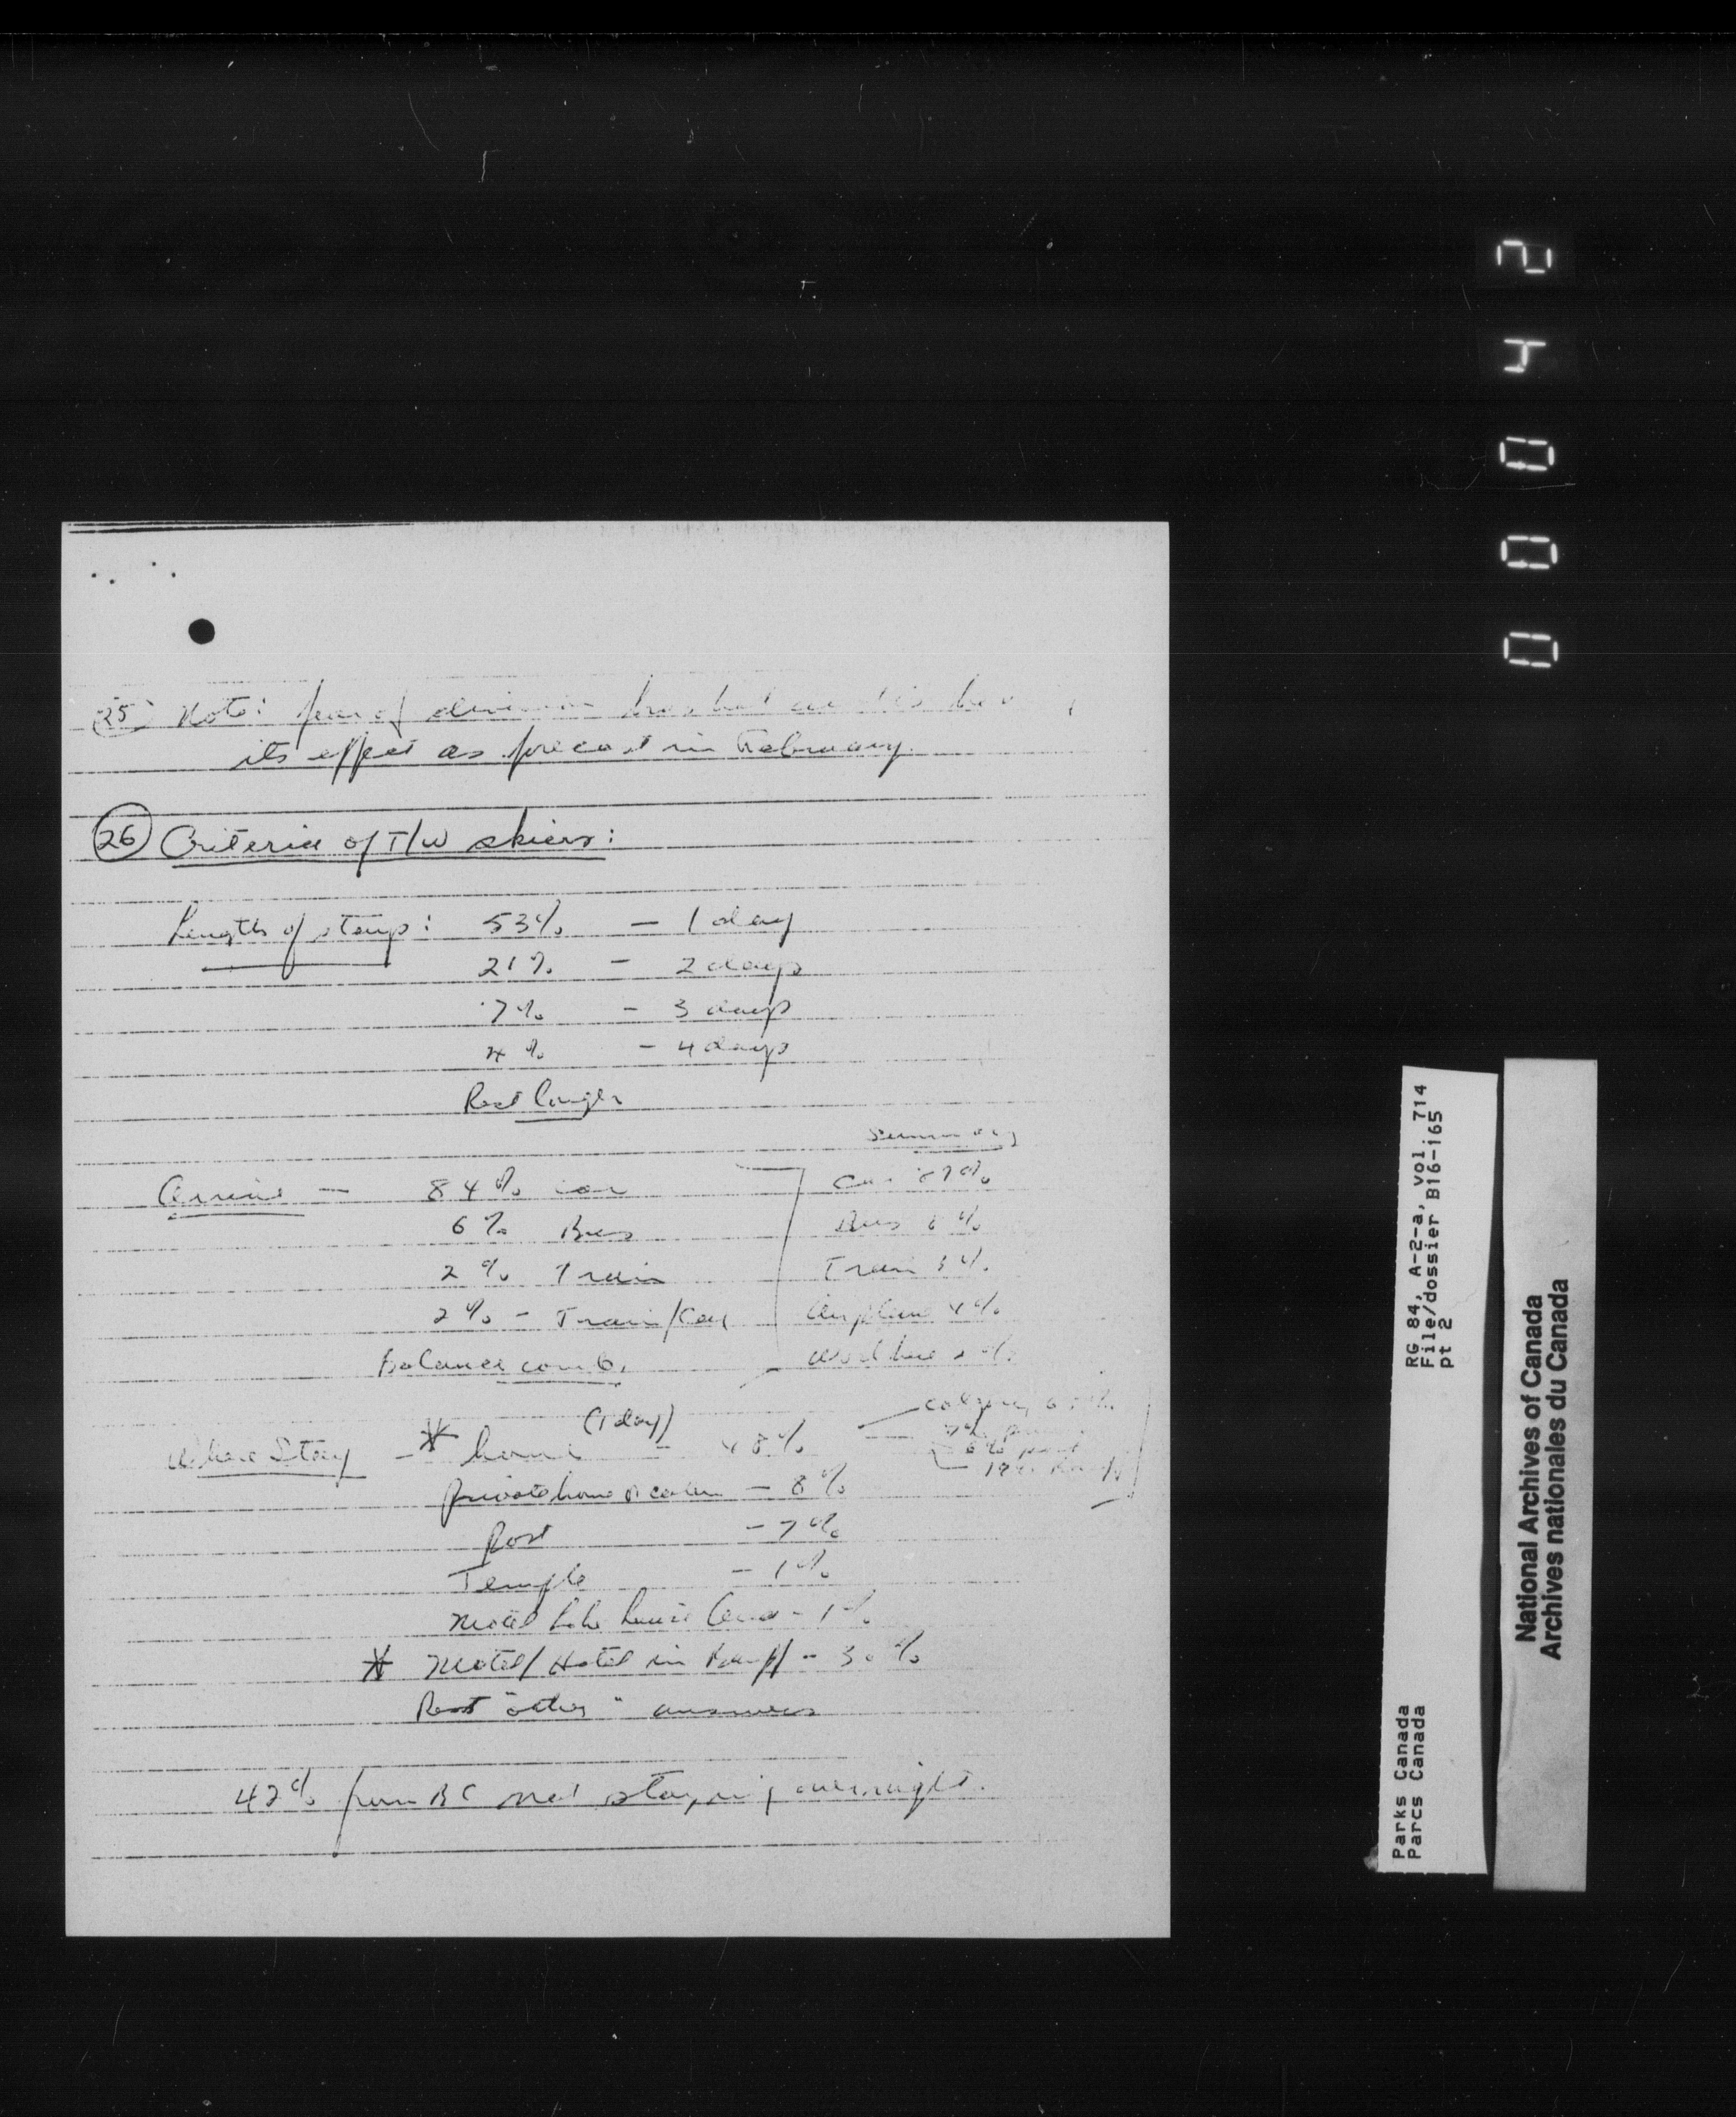 25 Note: fear of
its effect as forecast in February.
26 Criteria of T/W skiers:
Length of stay: 53% — 1 day
21% — 2 days
7% — 3 days
4% — 4 days
Rest longer
Summary
Arrive — 84% car
Car 87%
6% Bus
Bus %
2% Train
Train %
2% - Train/Car
Airplane 4%
Balance comb.
(1 day)
Calgary
Where Stay — * home — 48%
Private home or cabin — 8%
Post — 7%
Temple — 1%
Motel Lake Louise area - 1%
* Motel/Hotel in Banff - 30%
Rest "other" answers
42% from BC not staying overnight.
00042
RG 84, A-2-a, vol. 714
File/dossier B16-165
pt 2
Parks Canada
Parcs Canada
National Archives of Canada
Archives nationales du Canada